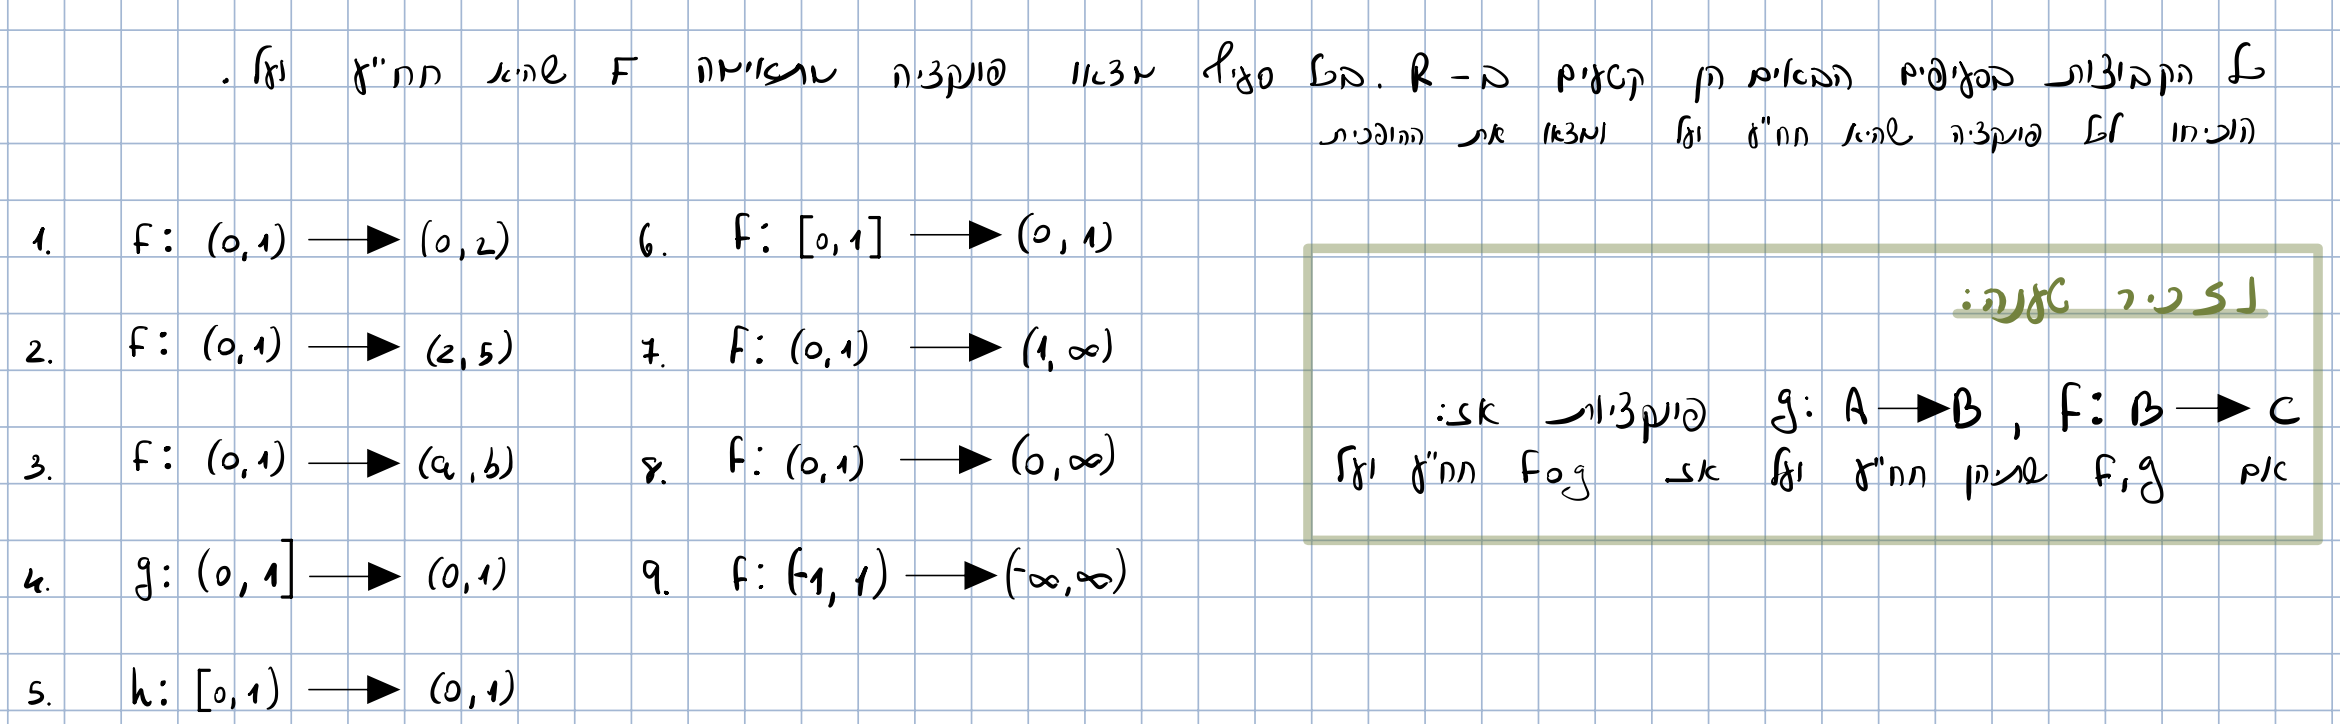 כל הקבוצות בסעיפים הבאים הן קטעים ב-R. בכל סעיף מצאו פונקציה מתאימה F שהיא חח"ע ועל.
הוכיחו לכל פונקציה שהיא חח"ע ועל ומצאו את ההופכית
1. f: (0,1) → (0,2)
2. f: (0,1) → (2,5)
3. f: (0,1) → (a,b)
4. g: (0,1] → (0,1)
5. h: [0,1) → (0,1)
6. f: [0,1] → (0,1)
7. f: (0,1) → (1,∞)
8. f: (0,1) → (0,∞)
9. f: (-1,1) → (-∞,∞)
נזכיר טענה:
g: A → B , F: B → C פונקציות אז:
אם F,g שתיהן חח"ע ועל אז Fog חח"ע ועל